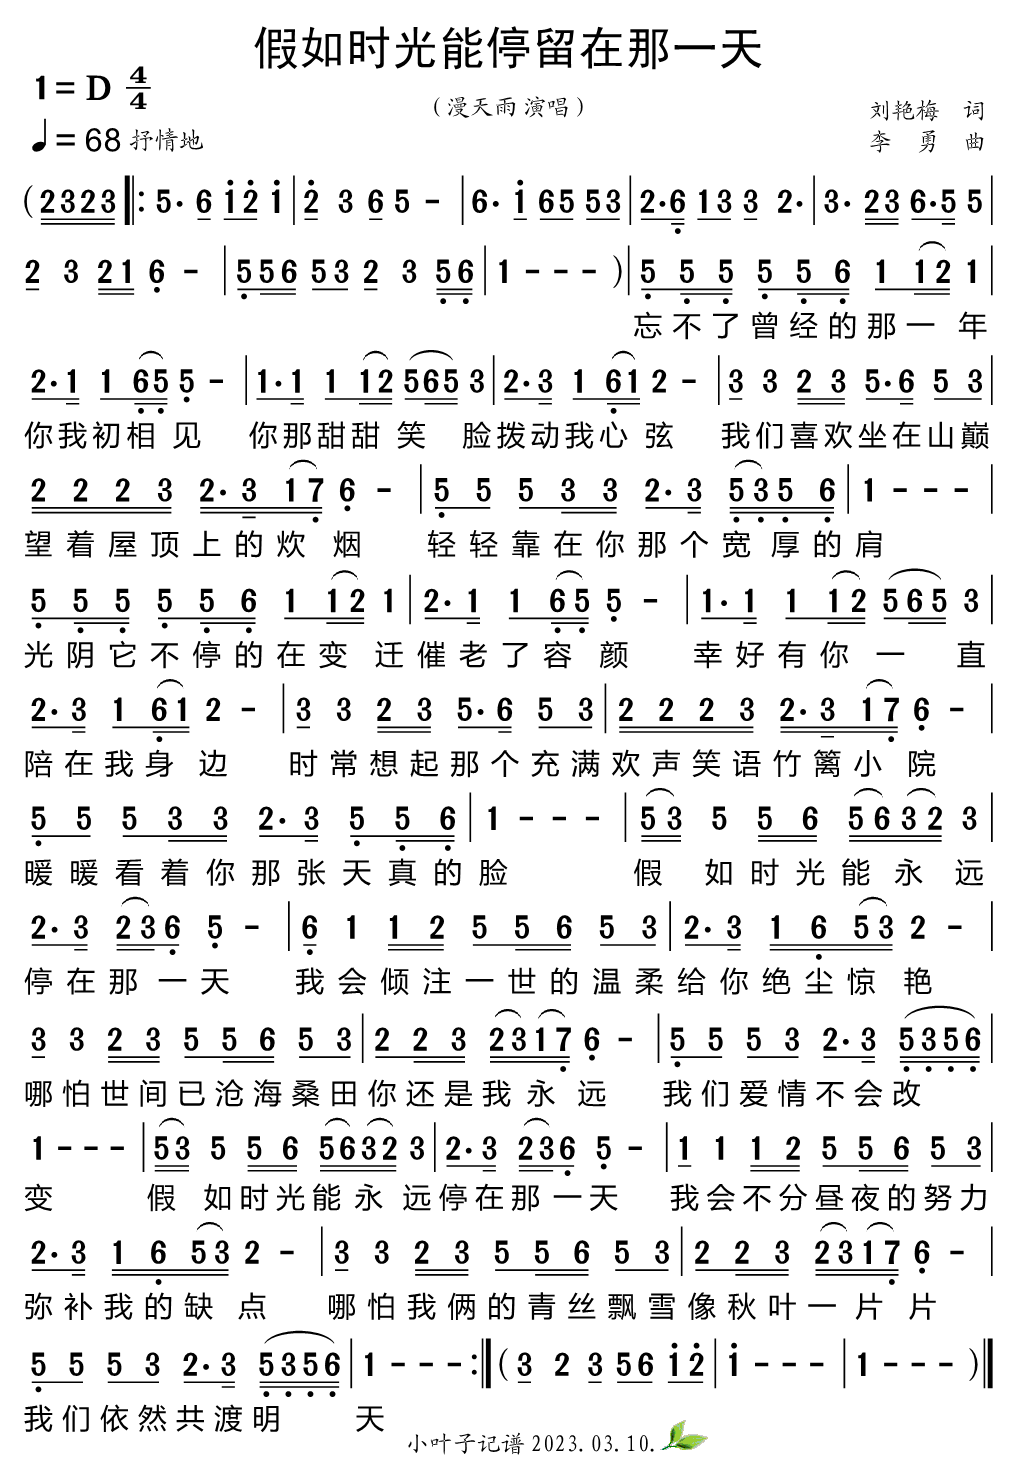 假如时光能停留在那一天
1=D 4/4
（漫天雨 演唱）
刘艳梅 词
♩=68 抒情地
李 勇 曲
(2323‖: 5· 6 1 2 1 | 2 3 6 5 - | 6· 1 65 53 | 2·6 13 3 2· | 3· 23 6·5 5 |
2 3 21 6 - | 5 56 53 2 3 56 | 1 - - - )| 5 5 5 5 5 6 1 12 1 |
忘不了曾经的那一 年
2·1 1 65 5 - | 1·1 1 12 565 3 | 2·3 1 61 2 - | 3 3 2 3 5·6 5 3
你我初相 见 你那甜甜 笑 脸拨动我心 弦 我们喜欢坐在山巅
2 2 2 3 2·3 17 6 - | 5 5 5 3 3 2·3 535 6 | 1 - - - |
望着屋顶上的炊 烟 轻轻靠在你那个宽 厚的肩
5 5 5 5 5 6 1 12 1 | 2·1 1 65 5 - | 1·1 1 12 565 3 |
光阴它不停的在变 迁催老了容 颜 幸好有你 一 直
2·3 1 61 2 - | 3 3 2 3 5·6 5 3 | 2 2 2 3 2·3 17 6 - |
陪在我身 边 时常想起那个充满欢声笑语竹篱小 院
5 5 5 3 3 2·3 5 5 6 | 1 - - - | 53 5 5 6 5632 3
暖暖看着你那张天真的脸 假 如时光能 永 远
2·3 236 5 - | 6 1 1 2 5 5 6 5 3 | 2·3 1 6 53 2 - |
停在那 一天 我会倾注一世的温柔给你绝尘惊 艳
3 3 2 3 5 5 6 5 3 | 2 2 3 2317 6 - | 5 5 5 3 2·3 5356 |
哪怕世间已沧海桑田你还是我 永 远 我们爱情不会改
1 - - - | 53 5 5 6 5632 3 | 2·3 236 5 - | 1 1 1 2 5 5 6 5 3 |
变 假 如时光能 永 远停在那 一天 我会不分昼夜的努力
2·3 1 6 53 2 - | 3 3 2 3 5 5 6 5 3 | 2 2 3 2317 6 - |
弥补我的缺 点 哪怕我俩的青丝飘雪像秋叶一 片 片
5 5 5 3 2·3 5356 | 1 - - - :‖( 3 2 3 56 12 | 1 - - - | 1 - - - )‖
我们依然共渡明 天
小叶子记谱 2023.03.10.